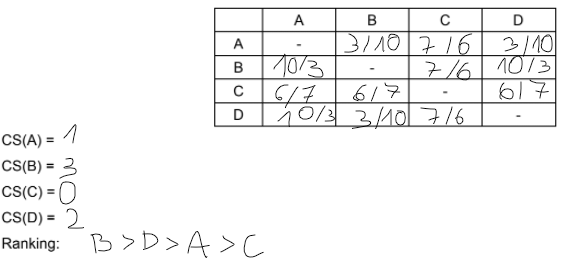 A B C D
A - 3/10 7/6 3/10
B 10/3 - 7/6 10/3
C 6/7 6/7 - 6/7
D 10/3 3/10 7/6 -
CS(A) = 1
CS(B) = 3
CS(C) = 0
CS(D) = 2
Ranking: B > D > A > C